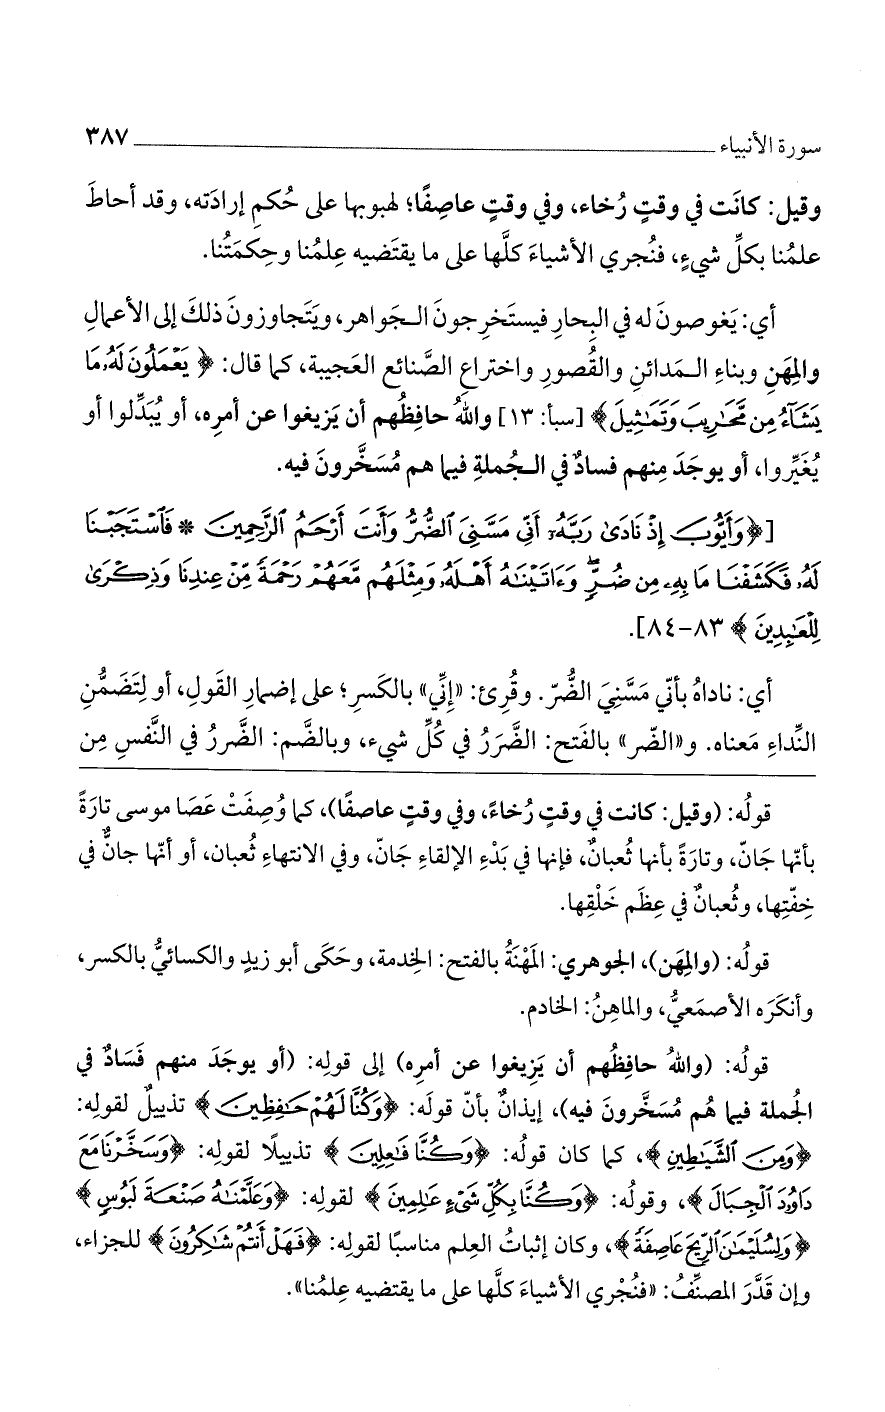 سورة الأنبياء ٣٨٧
وقيل: كانَت في وقتٍ رُخاء، وفي وقتٍ عاصِفًا؛ لهبوبها على حُكمِ إرادَته، وقد أحاطَ
علمُنا بكلِّ شيءٍ، فنُجري الأشياءَ كلَّها على ما يقتَضيه عِلمُنا وحِكمَتُنا.
أي: يَغوصونَ له في البِحار فيستَخرِجونَ الـجَواهر، ويَتَجاوزونَ ذلكَ إلى الأعمالِ
والمِهَنِ وبناءِ الـمَدائنِ والقُصورِ واختراعِ الصَّنائع العَجيبة، كما قال: ﴿يَعْمَلُونَ لَهُۥ مَا
يَشَآءُ مِن مَّحَٰرِيبَ وَتَمَٰثِيلَ﴾ [سبأ: ١٣] واللهُ حافِظُهم أن يَزيغوا عن أمرِه، أو يُبَدِّلوا أو
يُغَيِّروا، أو يوجَدَ مِنهم فسادٌ في الـجُملةِ فيما هم مُسَخَّرونَ فيه.
[﴿وَأَيُّوبَ إِذْ نَادَىٰ رَبَّهُۥٓ أَنِّى مَسَّنِىَ ٱلضُّرُّ وَأَنتَ أَرْحَمُ ٱلرَّٰحِمِينَ * فَٱسْتَجَبْنَا
لَهُۥ فَكَشَفْنَا مَا بِهِۦ مِن ضُرٍّ ۖ وَءَاتَيْنَٰهُ أَهْلَهُۥ وَمِثْلَهُم مَّعَهُمْ رَحْمَةً مِّنْ عِندِنَا وَذِكْرَىٰ
لِلْعَٰبِدِينَ﴾ ٨٣-٨٤].
أي: ناداهُ بأنّي مَسَّنِيَ الضُّرّ. وقُرِئ: «إنِّي» بالكَسرِ؛ على إضمارِ القَولِ، أو لِتَضَمُّنِ
النِّداءِ مَعناه. و«الضّر» بالفَتح: الضَّرَرُ في كُلِّ شيء، وبالضَّم: الضَّررُ في النَّفسِ مِن
قولُه: (وقيل: كانت في وقتٍ رُخاءً، وفي وقتٍ عاصفًا)، كما وُصِفَتْ عَصَا موسى تارَةً
بأنّها جَانّ، وتارَةً بأنها ثُعبانٌ، فإنها في بَدْءِ الإلقاءِ جَانّ، وفي الانتهاءِ ثُعبان، أو أنّها جانٌّ في
خِفّتِها، وثُعبانٌ في عِظَم خَلْقِها.
قولُه: (والمِهَن)، الجوهري: المَهْنَةُ بالفتح: الخِدمة، وحَكَى أبو زيدٍ والكسائيُّ بالكسر،
وأنكَرَه الأصمَعيُّ، والماهِنُ: الخادم.
قولُه: (واللهُ حافِظُهم أن يَزِيغوا عن أمرِه) إلى قولِه: (أو يوجَدَ منهم فَسَادٌ في
الجُملة فيما هُم مُسَخَّرونَ فيه)، إيذانٌ بأنّ قولَه: ﴿وَكُنَّا لَهُمْ حَٰفِظِينَ﴾ تذييلٌ لقولِه:
﴿وَمِنَ ٱلشَّيَٰطِينِ﴾، كما كان قولُه: ﴿وَكُنَّا فَٰعِلِينَ﴾ تذييلًا لقولِه: ﴿وَسَخَّرْنَا مَعَ
دَاوُۥدَ ٱلْجِبَالَ﴾، وقولُه: ﴿وَكُنَّا بِكُلِّ شَىْءٍ عَٰلِمِينَ﴾ لقولِه: ﴿وَعَلَّمْنَٰهُ صَنْعَةَ لَبُوسٍ﴾
﴿وَلِسُلَيْمَٰنَ ٱلرِّيحَ عَاصِفَةً﴾، وكان إثباتُ العِلم مناسبًا لقولِه: ﴿فَهَلْ أَنتُمْ شَٰكِرُونَ﴾ للجزاء،
وإن قَدَّرَ المصنِّفُ: «فنُجْري الأشياءَ كلَّها على ما يقتضيه عِلمُنا».